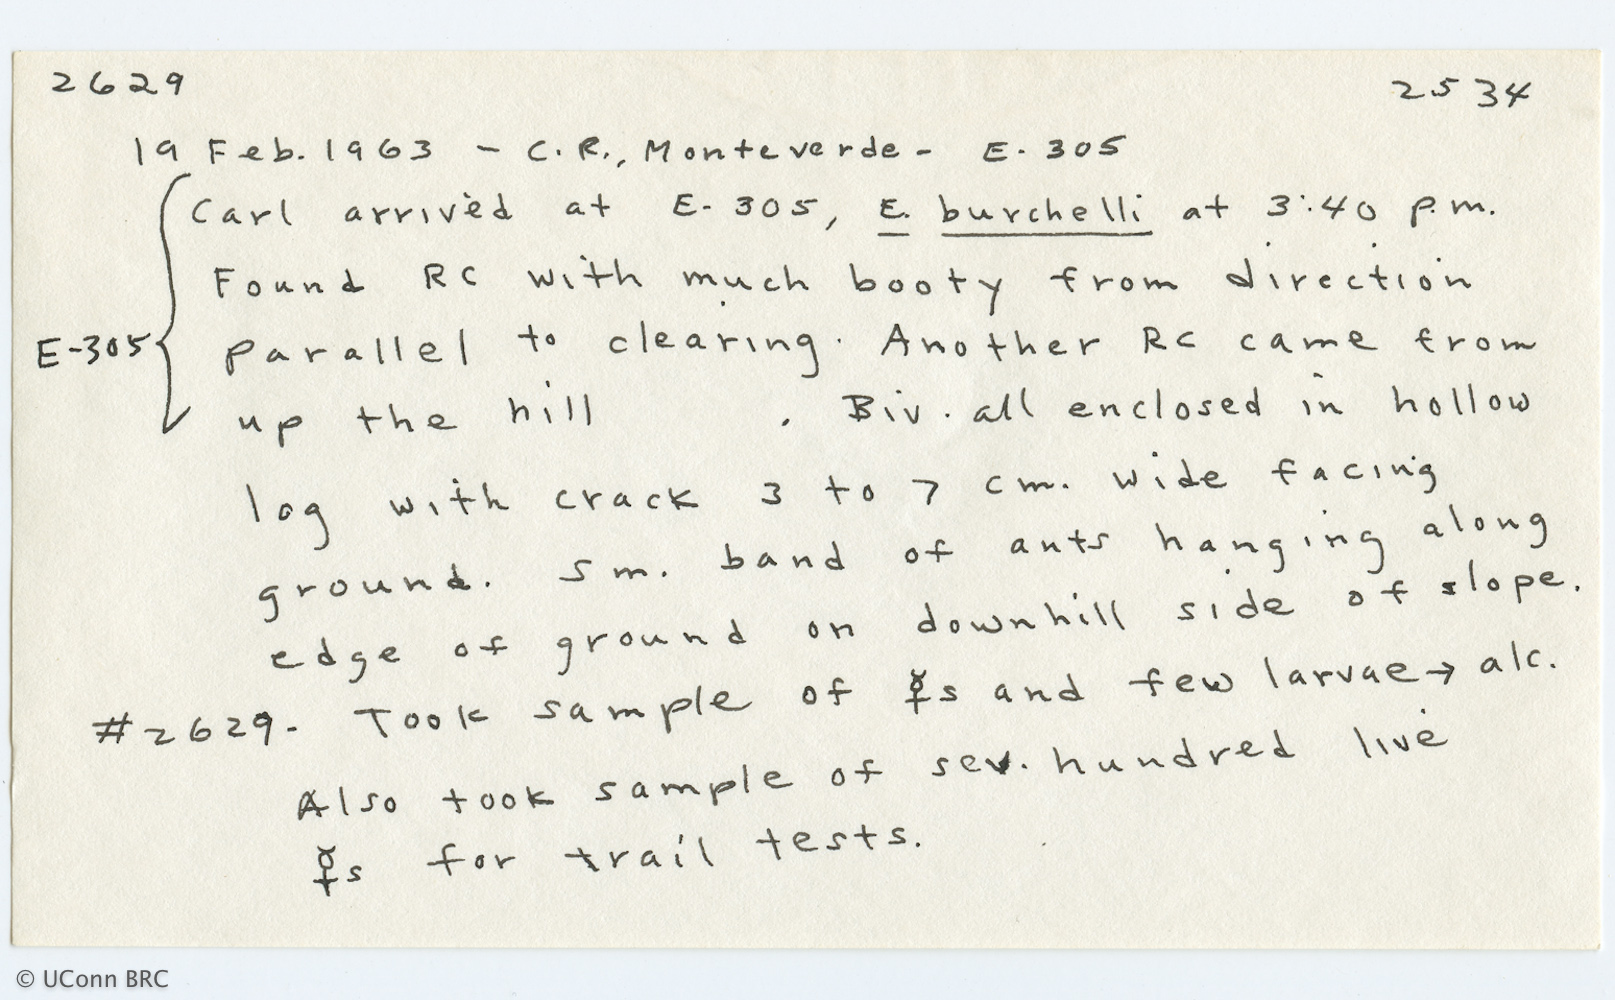 2629 2534
19 Feb. 1963 - C.R., Monteverde - E-305
Carl arrived at E-305, E. burchelli at 3:40 p.m.
Found RC with much booty from direction
E-305 parallel to clearing. Another RC came from
up the hill . Biv. all enclosed in hollow
log with crack 3 to 7 cm. wide facing
ground. Sm. band of ants hanging along
edge of ground on downhill side of slope.
#2629 - Took sample of ☿s and few larvae → alc.
Also took sample of sev. hundred live
☿s for trail tests.
© UConn BRC